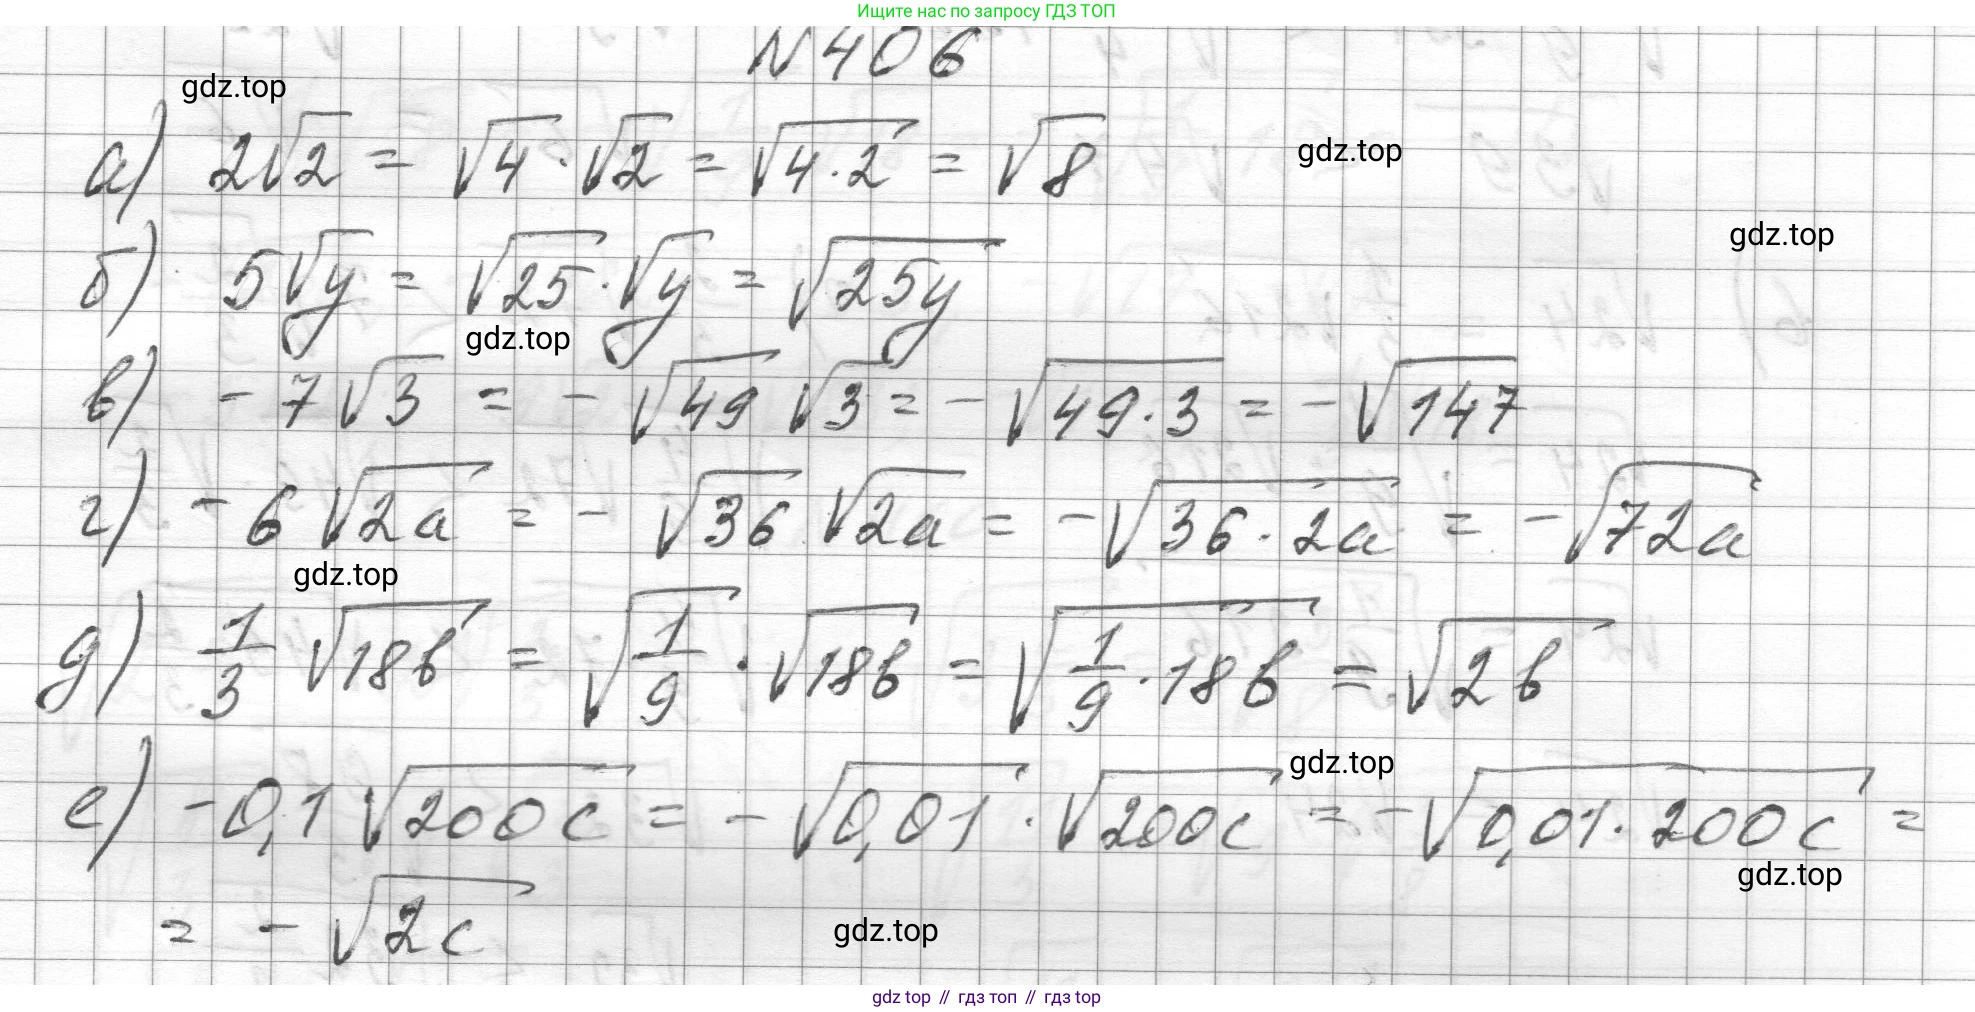 Ищите нас по запросу ГДЗ ТОП
N 406
gdz.top
а) 2√2 = √4 · √2 = √(4·2) = √8
gdz.top
gdz.top
б) 5√y = √25 · √y = √(25y)
gdz.top
в) -7√3 = -√49 √3 = -√(49·3) = -√147
г) -6√(2a) = -√36 √(2a) = -√(36·2a) = -√(72a)
gdz.top
д) 1/3 √(18b) = √(1/9) · √(18b) = √(1/9 · 18b) = √(2b)
gdz.top
е) -0,1√(200c) = -√(0,01) · √(200c) = -√(0,01·200c) =
gdz.top
= -√(2c)
gdz.top
gdz top // гдз топ // гдз top